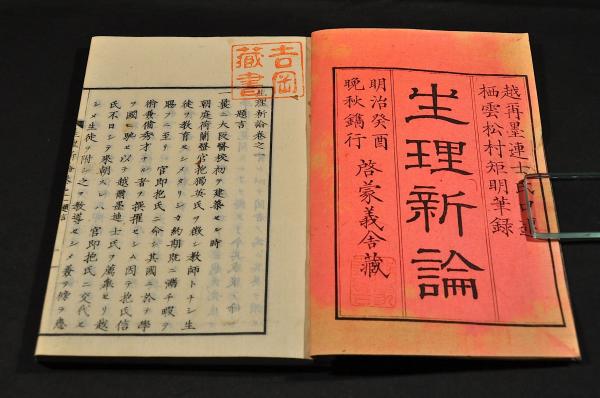 越再墨連士氏口述
栖雲松村矩明筆録
生理新論
明治癸酉
晩秋鐫行
啓蒙義舎藏
吉岡
藏書
生理新論卷之一
題言
一曩ニ大阪醫挍初テ建築セル時
朝庭荷蘭醫官抱獨英氏ヲ徴シ教師トナシ生
徒ヲ教育セシメタリシカ約期既ニ満チ暇ヲ
賜フニ至リ官即抱氏ニ命シ其國ニ於テ學
術兼備秀才ナル者ヲ撰擢セシム因テ抱氏信
ヲ國ニ馳セ以テ越爾墨連士氏ヲ薦擧セリ越
氏不日シテ來朝ス乃官即抱氏ニ交代セ
シメ生徒ヲ附シ之ヲ教導セシメ